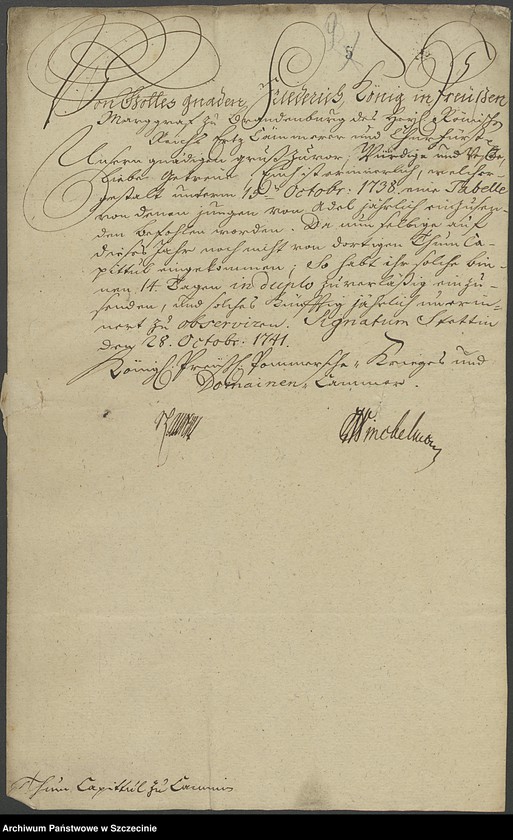 Von Gottes gnaden, Friederich, König in Preüßen
Marggraf zu Brandenburg des Heyl. Römisch
Reichs Ertz Cämmerer und Churfürst
Unsern gnädigen gruß zuvor, Würdige und Veste
Liebe Getreue, Euch ist erinnerlich, welcher-
gestalt unterm 13 Octobr: 1738 eine Tabelle
von denen jungen von Adel jährlich einzusen-
den befohlen worden. Da nun selbige auf
dieses Jahr noch nicht von dortigen Thum Ca-
pittul eingekommen; So habt ihr solche bin-
nen 14 Tagen in duplo zuverläßig einzu-
senden, und solches künfftig jährlich unerin-
nert zu observiren. Signatum Stettin
den 28. Octobr: 1741.
Königl. Preüßl. Pommersche Krieges und
Domainen Cammer.
Winckelmann
Thum Capittul zu Cammin
Archiwum Państwowe w Szczecinie